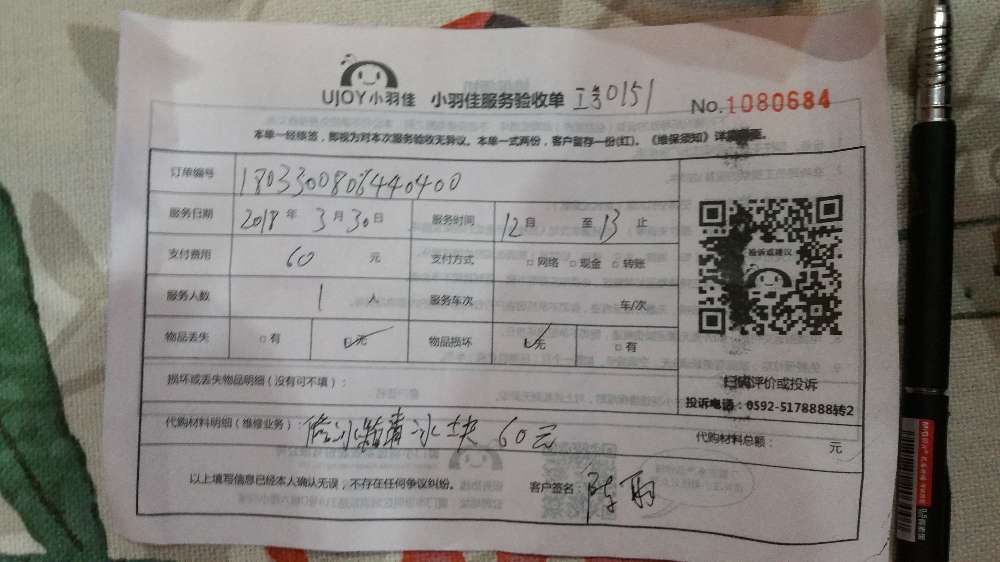 UJOY小羽佳 小羽佳服务验收单 工号0151
No.1080684
本单一经续签，即视为对本次服务验收无异议。本单一式两份，客户留存一份(红)。《维保须知》详
订单编号 1803300806440400
服务日期 2018 年 3 月 30 日 服务时间 12 自 至 13 止
支付费用 60 元 支付方式 □网络 □现金 □转账
服务人数 1 人 服务车次 车/次
物品丢失 □有 无 物品损坏 无 □有
投诉或建议
扫码评价或投诉
投诉电话：0592-5178888转2
损坏或丢失物品明细（没有可不填）：
代购材料明细（维修业务）： 修冰箱清冰块 60元 代购材料总额： 元
以上填写信息已经本人确认无误，不存在任何争议纠纷。 客户签名 陈雨
M&G